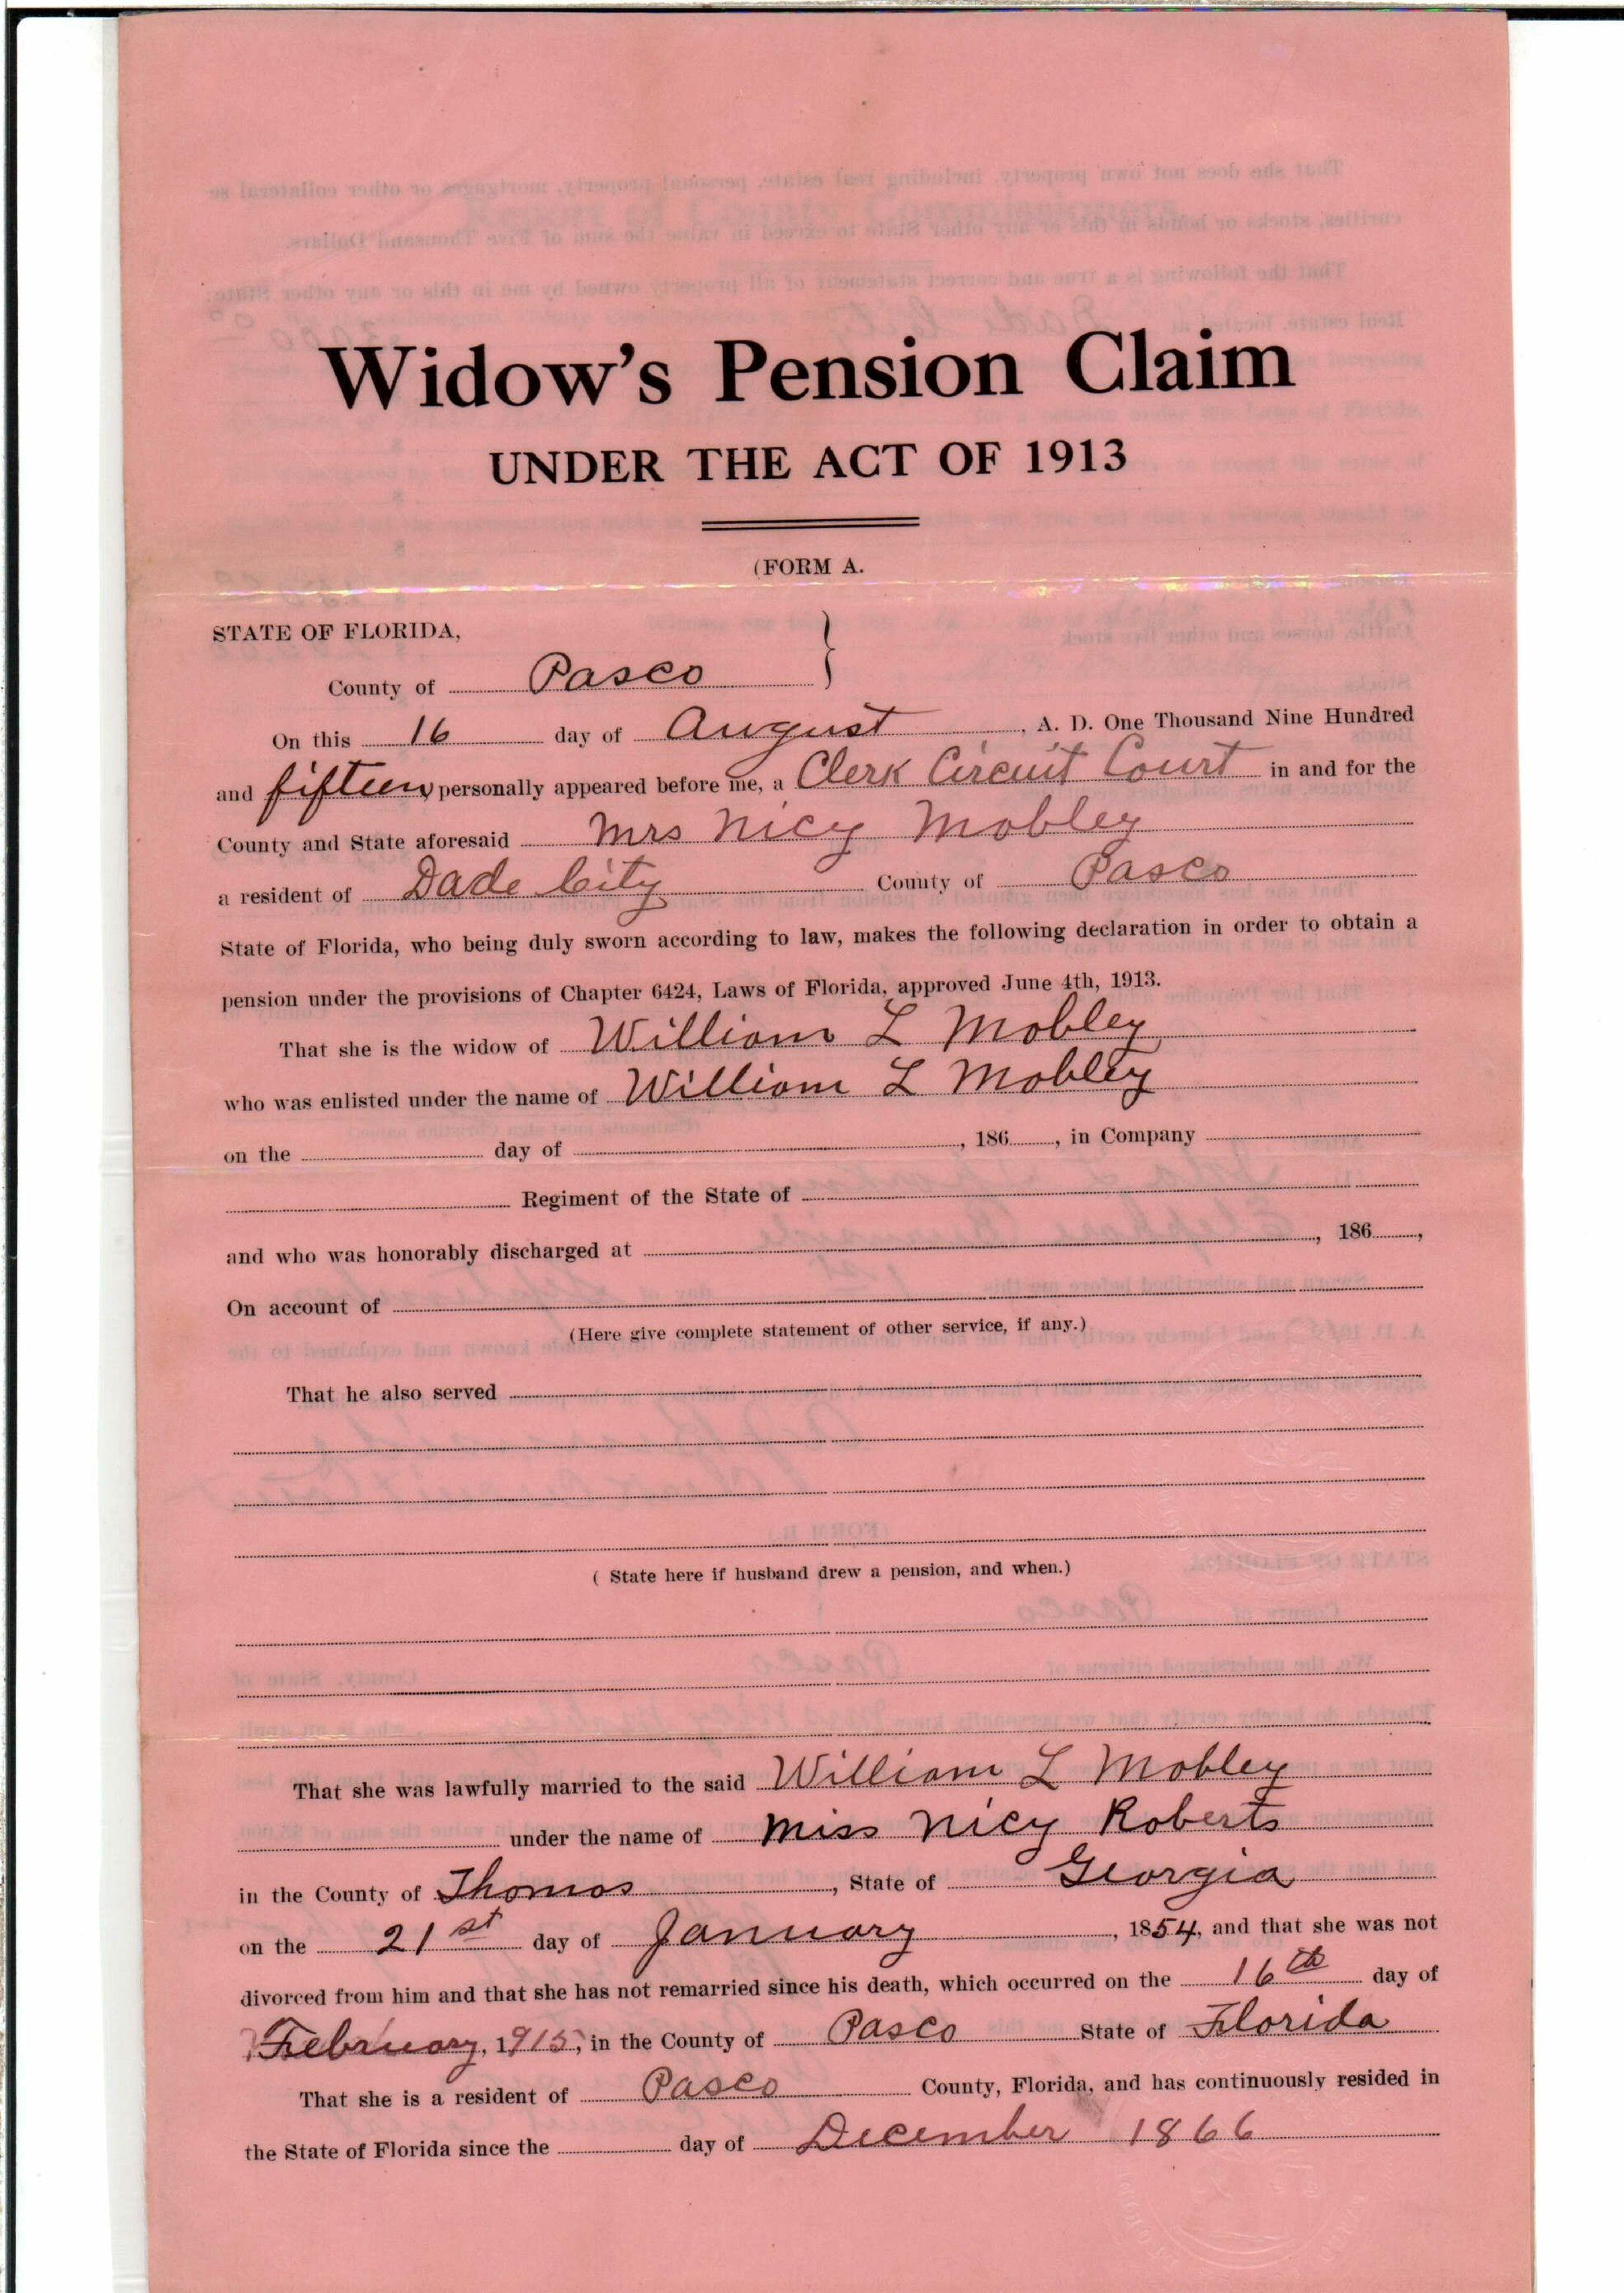 Widow's Pension Claim
UNDER THE ACT OF 1913
(FORM A.
STATE OF FLORIDA,
County of Pasco }
On this 16 day of August, A. D. One Thousand Nine Hundred
and fifteen personally appeared before me, a Clerk Circuit Court in and for the
County and State aforesaid Mrs Nicy Mobley
a resident of Dade City County of Pasco
State of Florida, who being duly sworn according to law, makes the following declaration in order to obtain a
pension under the provisions of Chapter 6424, Laws of Florida, approved June 4th, 1913.
That she is the widow of William L Mobley
who was enlisted under the name of William L Mobley
on the day of , 186 , in Company
Regiment of the State of
and who was honorably discharged at , 186 ,
On account of
(Here give complete statement of other service, if any.)
That he also served
( State here if husband drew a pension, and when.)
That she was lawfully married to the said William L Mobley
under the name of Miss Nicy Roberts
in the County of Thomas, State of Georgia
on the 21st day of January, 1854, and that she was not
divorced from him and that she has not remarried since his death, which occurred on the 16th day of
February, 1915, in the County of Pasco State of Florida
That she is a resident of Pasco County, Florida, and has continuously resided in
the State of Florida since the day of December 1866